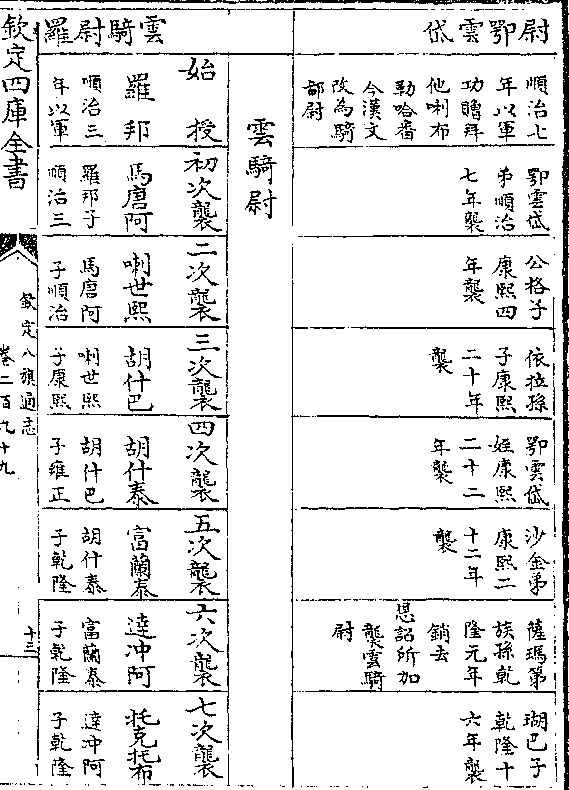 尉鄂雲岱
順治七
年以軍
功贈拜
他喇布
勒哈番
今漢文
改為騎
都尉
鄂雲岱
弟順治
七年襲
公格子
康熙四
年襲
依拉孫
子康熙
二十年
襲
鄂雲岱
姪康熙
二十二
年襲
沙金弟
康熙二
十二年
襲
薩瑪第
族孫乾
隆元年
銷去
恩詔所加
襲雲騎
尉
瑚巴子
乾隆十
六年襲
雲騎尉羅
雲騎尉
始授
羅邦
順治三
年以軍
初次襲
馬唐阿
羅邦子
順治三
二次襲
喇世熙
馬唐阿
子順治
三次襲
胡什巴
喇世熙
子康熙
四次襲
胡什泰
胡什巴
子雍正
五次襲
富蘭泰
胡什泰
子乾隆
六次襲
達冲阿
富蘭泰
子乾隆
七次襲
托克托布
達冲阿
子乾隆
欽定四庫全書
欽定八旗通志
卷二百九十九
十三